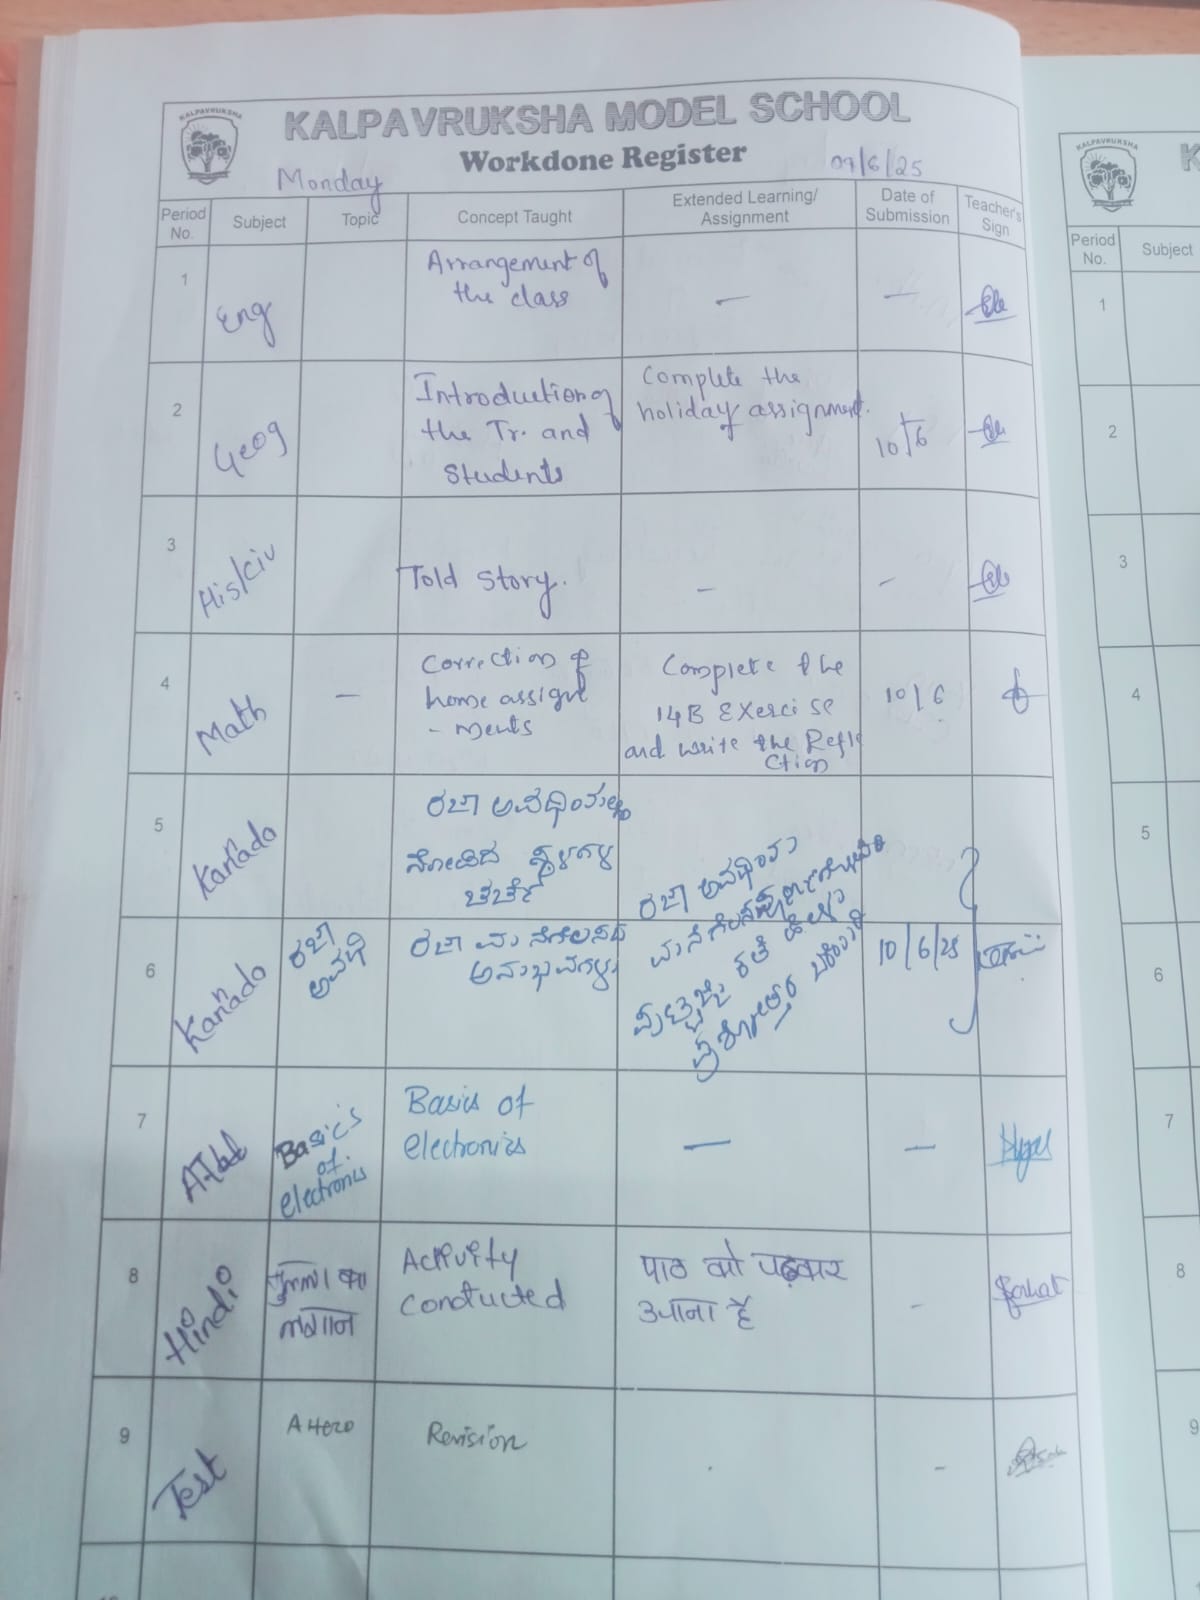 KALPAVRUKSHA
KALPAVRUKSHA MODEL SCHOOL
Workdone Register
Monday
09/6/25
Period No. Subject Topic Concept Taught Extended Learning/ Assignment Date of Submission Teacher's Sign
1 Eng Arrangement of
the class — —
2 Geog Introduction of
the Tr. and
Students
Complete the
holiday assignment.
10/6
3 His/Civ Told Story. – –
4 Math — Correction of
home assign
- ments
Complete the
14B Exercise
and write the Refle
ction
10/6
5 Kannada ರಜಾ ಅವಧಿಯಲ್ಲಿ
ನೋಡಿದ ಸ್ಥಳಗಳ
ಚರ್ಚೆ
6 Kannada ರಜಾ
ಅವಧಿ
ರಜಾ ಮನೆಗೆಲಸದ
ಅನುಭವಗಳು
ರಜಾ ಅವಧಿಯ
ಕತೆ
10/6/25
7 A.T.lab Basics
of
electronics
Basics of
electronics
— —
8 Hindi Activity
conducted
पाठ को पढ़कर
आना है
-
9 Test A Hero Revision
-
KALPAVRUKSHA
K
Period No. Subject
1
2
3
4
5
6
7
8
9